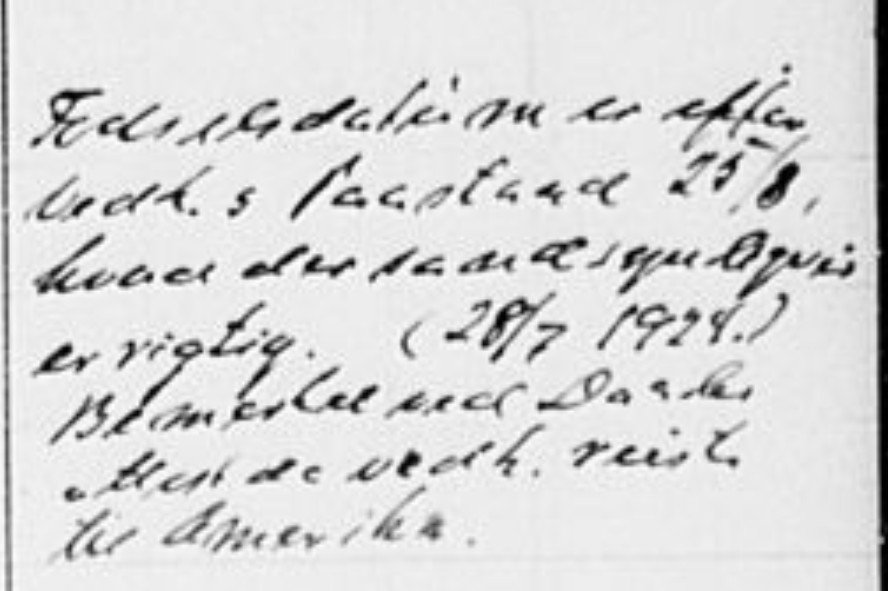 Fødselsdatum er efter
vedk.s Paastand 25/8,
hvad der sandsynligvis
er rigtig. (28/7 1924.)
Bemerket ved Daabs
attest da vedk. reiste
til Amerika.